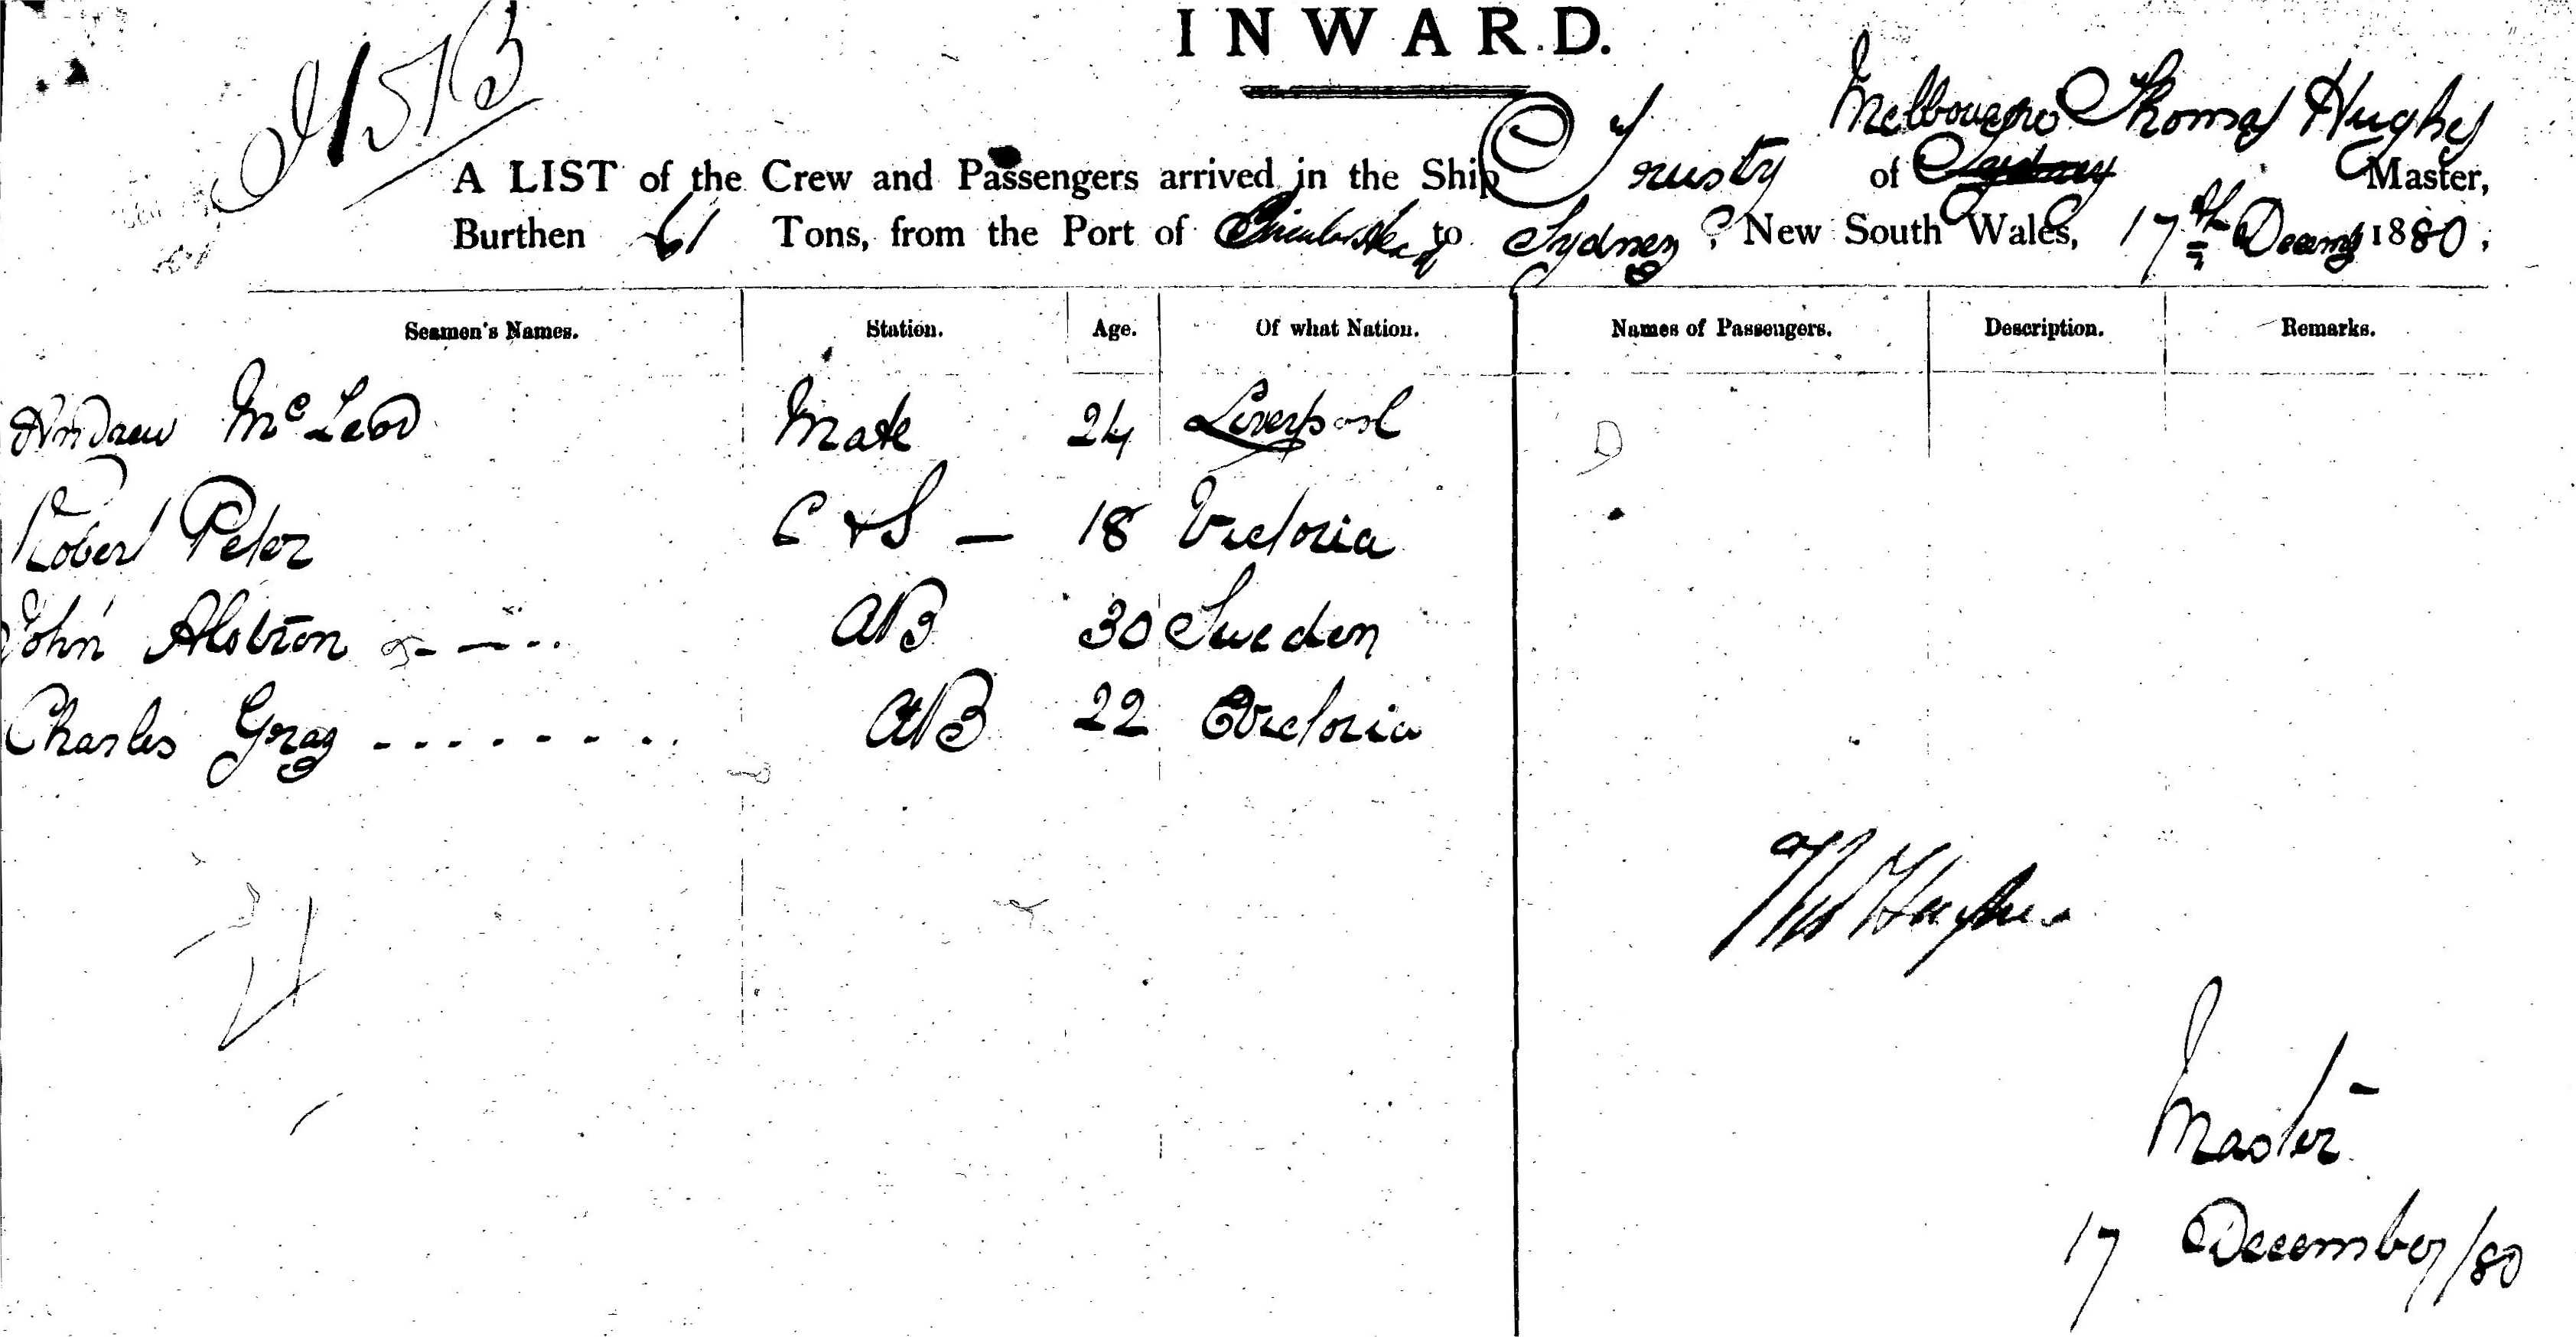 INWARD.
Melbourne Thomas Hughes
A LIST of the Crew and Passengers arrived in the Ship Trusty of Sydney Master,
Burthen 61 Tons, from the Port of to Sydney, New South Wales, 17th Decemb 1880,
Seamen's Names. Station. Age. Of what Nation. Names of Passengers. Description. Remarks.
Andrew McLeod Mate 24 Liverpool
Robert Peter C & S — 18 Victoria
John Alstron AB 30 Sweden
Charles Gray AB 22 Victoria
Thos Hughes
Master
17 December/80